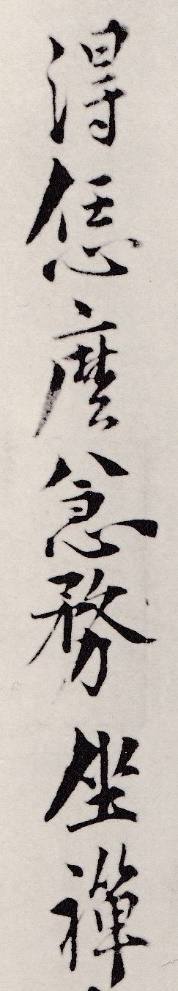 得恁麼急務坐禪